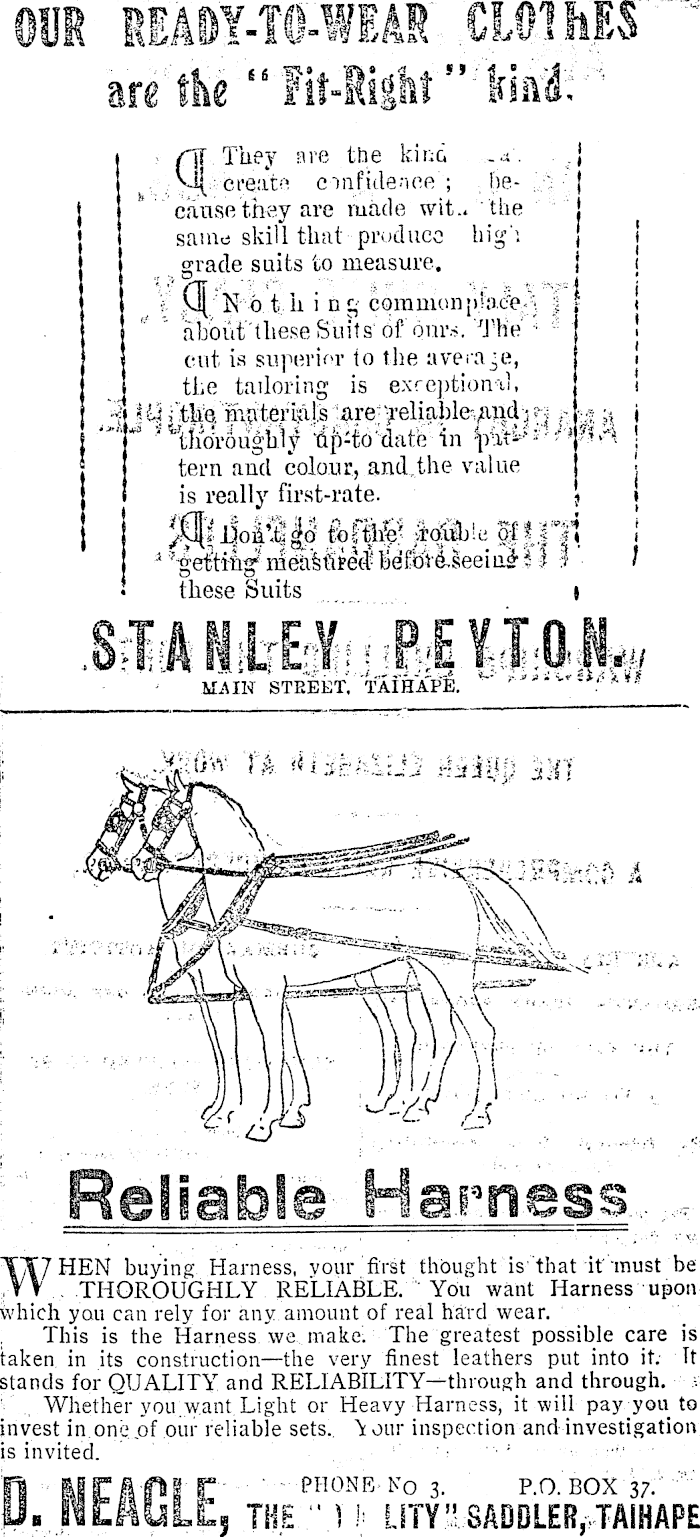 OUR READY-TO-WEAR CLOTHES
are the "Fit-Right" kind.
¶ They are the kind
create confidence; be-
cause they are made the
same skill that produce high
grade suits to measure.
¶ Nothing commonplace
about these Suits of ours. The
cut is superior to the average,
the tailoring is exceptional,
the materials are reliable and
thoroughly up-to date in pat-
tern and colour, and the value
is really first-rate.
¶ Don't go to the rouble of
getting measured before seeing
these Suits
STANLEY PEYTON.
MAIN STREET, TAIHAPE.
THE QUEEN ELIZABETH AT WORK
Reliable Harness
WHEN buying Harness, your first thought is that it must be
THOROUGHLY RELIABLE. You want Harness upon
which you can rely for any amount of real hard wear.
This is the Harness we make. The greatest possible care is
taken in its construction—the very finest leathers put into it. It
stands for QUALITY and RELIABILITY—through and through.
Whether you want Light or Heavy Harness, it will pay you to
invest in one of our reliable sets. Your inspection and investigation
is invited.
D. NEAGLE, PHONE No 3. P.O. BOX 37.
THE " LITY" SADDLER, TAIHAPE